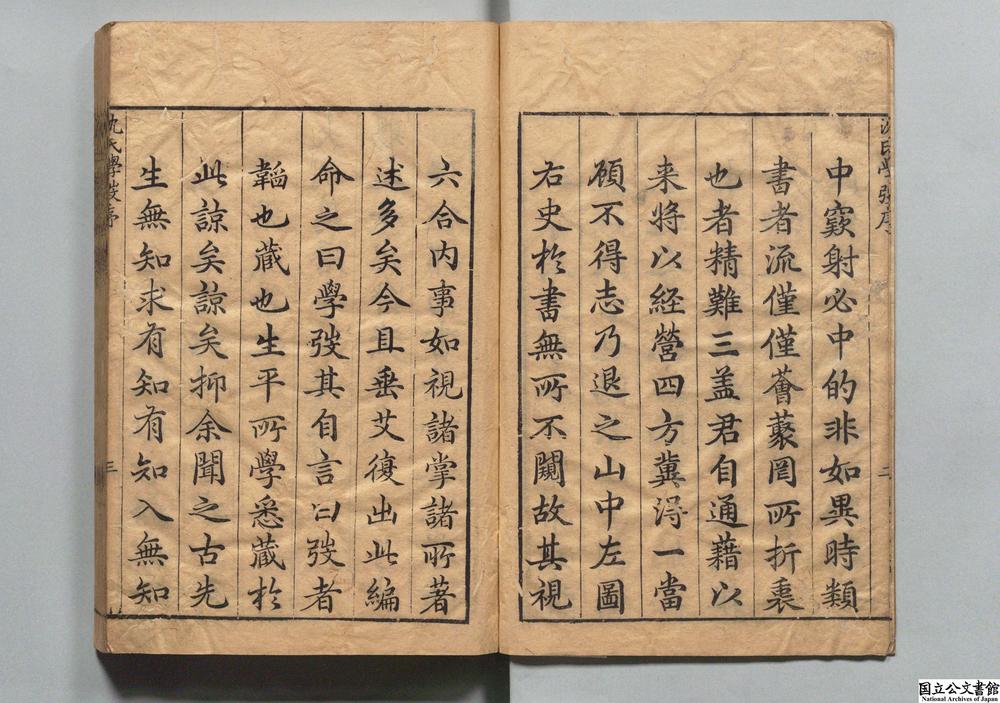 中窽射必中的非如異時類
書者流僅僅薈蕞罔所折衷
也者精難三盖君自通藉以
来將以経營四方冀得一當
顧不得志乃退之山中左圖
右史於書無所不闚故其視
六合内事如視諸掌諸所著
述多矣今且垂艾復出此編
命之曰學弢其自言曰弢者
韜也藏也生平所學悉藏於
此諒矣諒矣抑余聞之古先
生無知求有知有知入無知
沈氏學弢序
二
沈氏學弢序
三
国立公文書館
National Archives of Japan